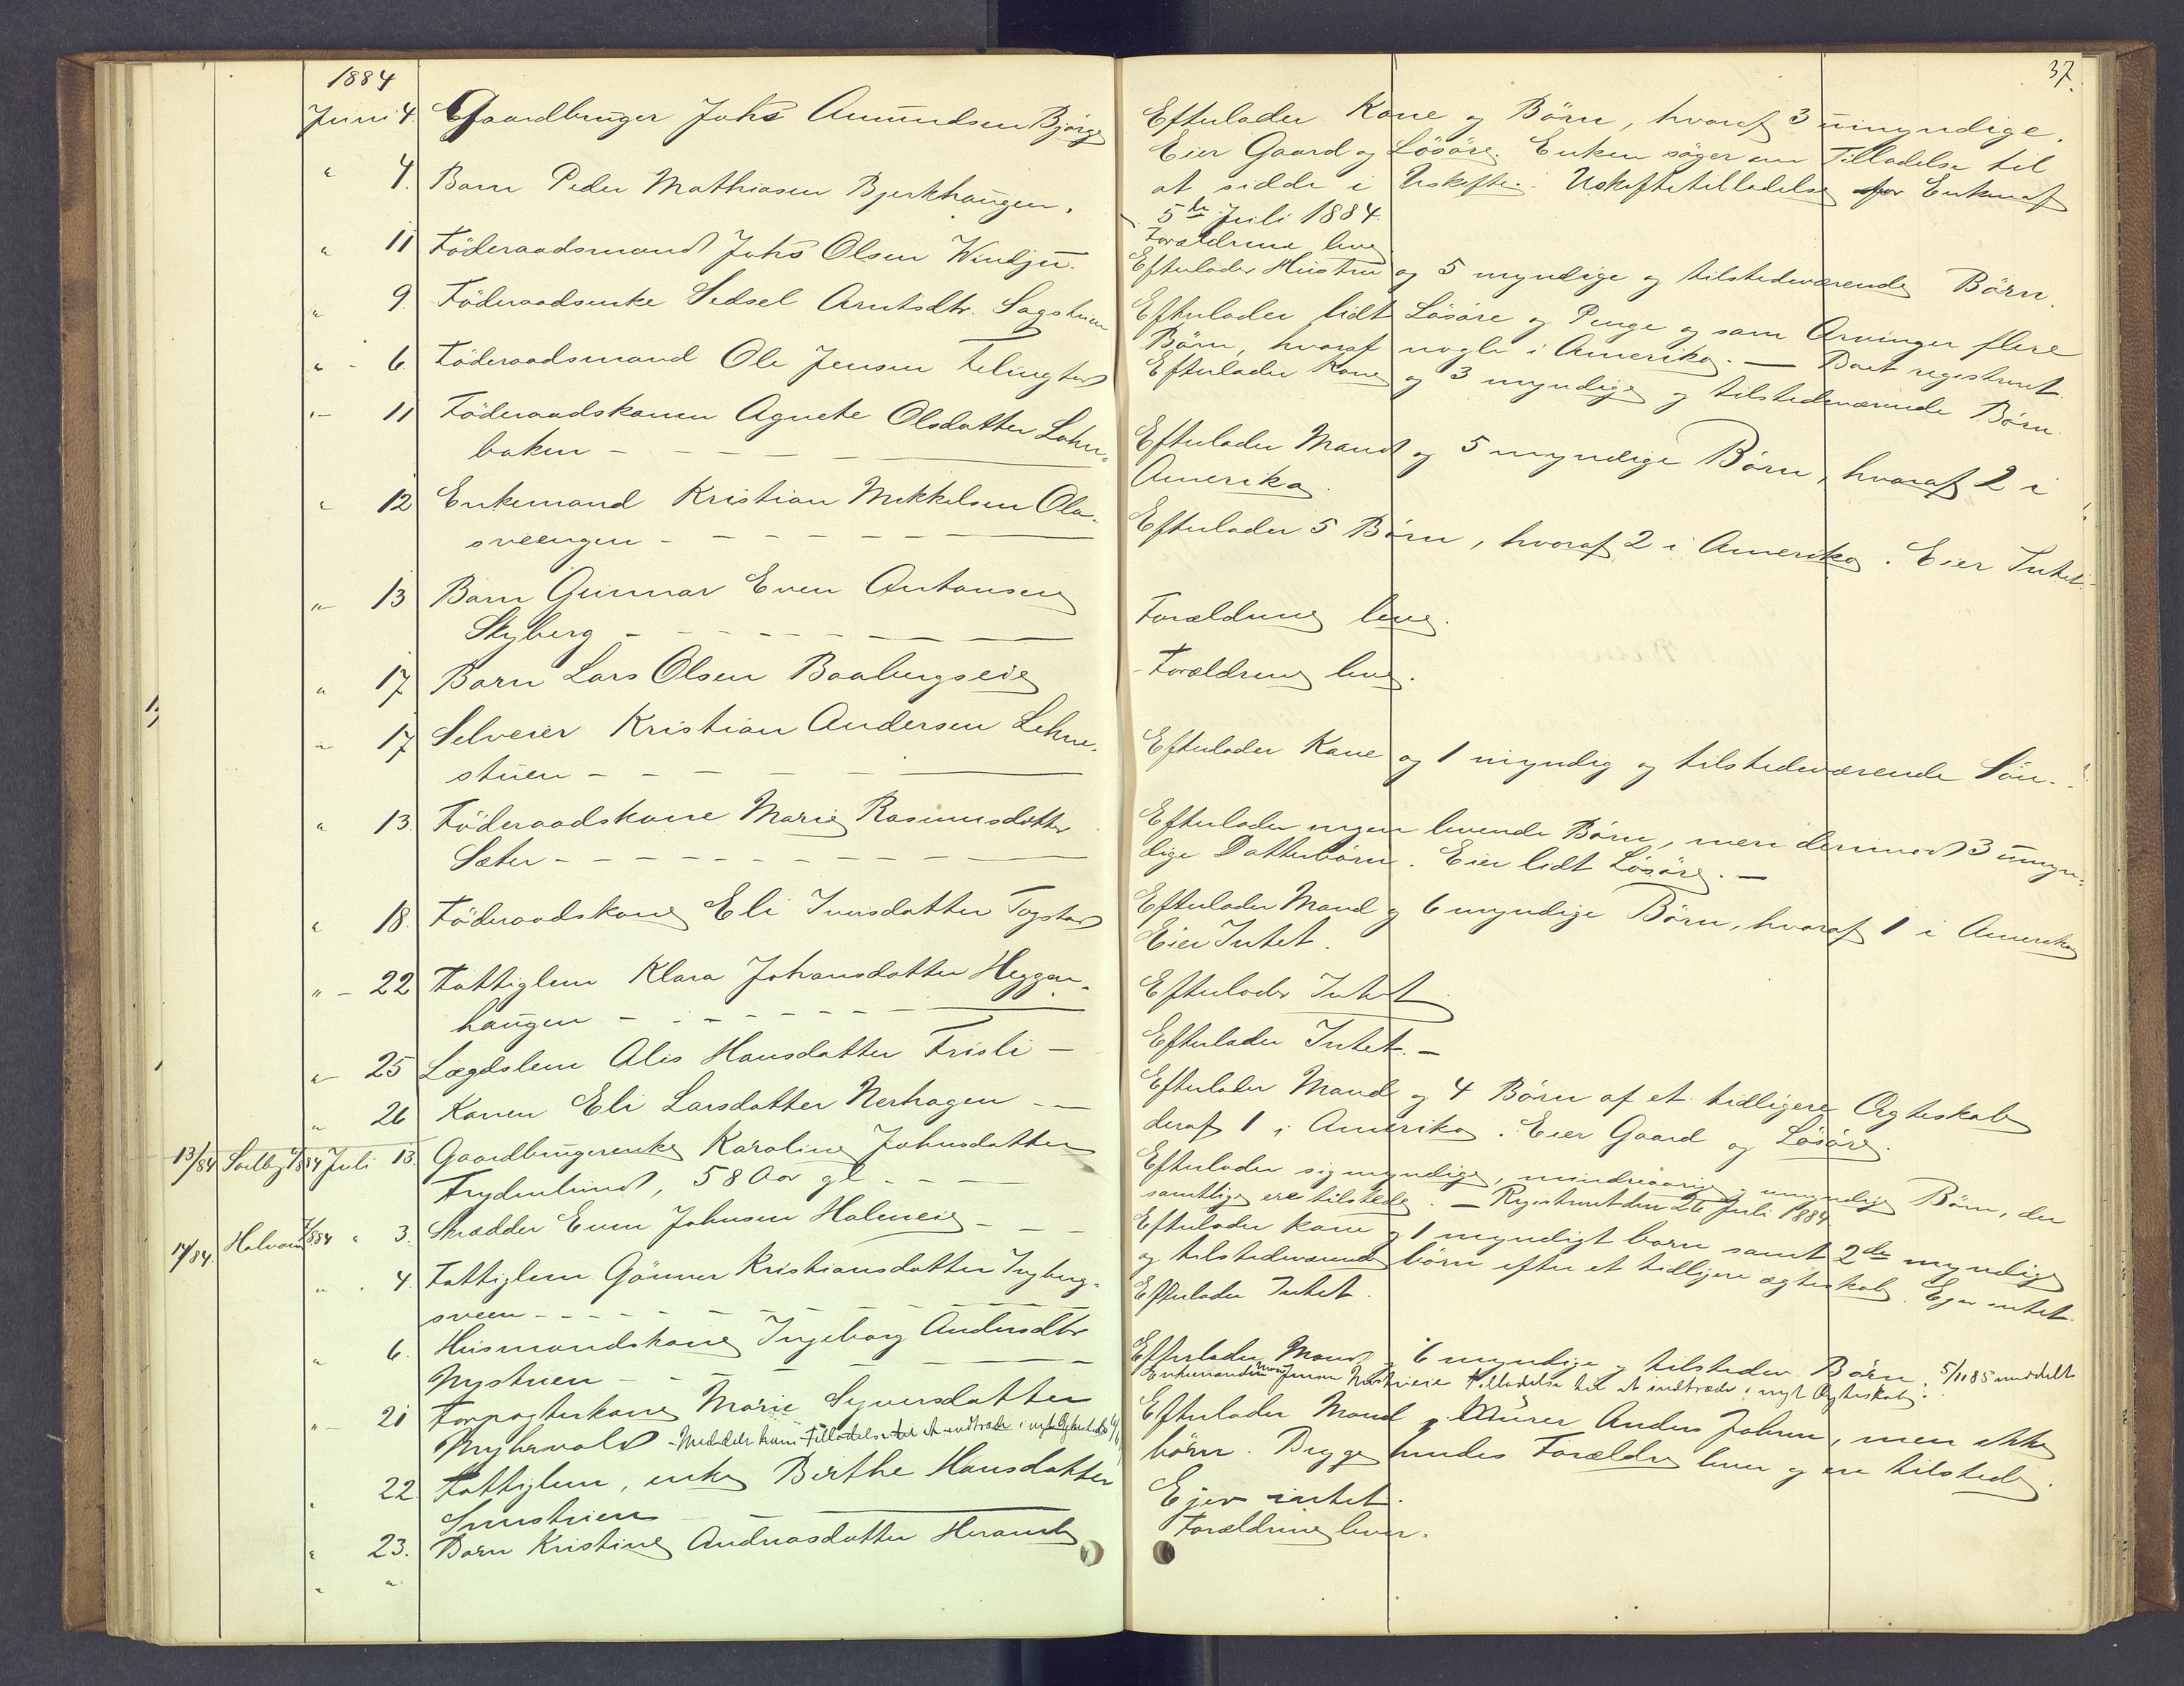 1884
Juni 4. Gaardbruger Johs Amundsen Bjørge
" 4. Barn Peder Mathiasen Bjerkhaugen.
" 11 Föderaadsmand Johs Olsen Windju.
" 9. Föderaadsenke Sedsel Arntsdtr. Sagstuen
" - 6 Föderaadsmand Ole Jensen
" - 11 Föderaadskonen Agnete Olsdatter Lohn-
baken - - - -
" 12 Enkemand Kristian Mikkelsen Ola-
sveengen - - - -
" 13 Barn Gunnar Even Antonsen
Skyberg - - - -
" 17 Barn Lars Olsen Baabergseie
" 17 Selveier Kristian Andersen Lehne-
stuen - - - -
" 13. Föderaadskone Marie Rasmusdatter
Sæter - - - -
" 18. Föderaadskone Eli Iversdatter Togstad
" - 22 Fattiglem Klara Johansdatter Heggen-
haugen - - - -
" - 25 Lægdslem Alis Hansdatter Frisli -
" 26 Konen Eli Larsdatter Nerhagen - -
13/84 Juli 13. Gaardbrugerenke Karoline Johnsdatter
Frydenlund, 58 Aar gl. - - -
14/84. " 3. Skrædder Even Johnsen Holmeie - -
" 4. Fattiglem Gönner Kristiansdatter Ingberg-
sveen - - - -
" 6. Husmandskone Ingeborg Andersdtr
Nystuen - - - -
" - 21 Forpagterkone Marie Syversdatter
Myhrvold - Meddelt ham Tilladelse til at indtræde i nyt Ægteskab
" 22 Fattiglem, enke Birthe Hansdatter
- -
" 23. Barn Kristine Andreasdatter
" "
37.
Efterlader Kone og Börn, hvoraf 3 umyndige.
Eier Gaard og Lösöre. Enken söger om Tilladelse til
at sidde i Uskifte. Uskiftetilladelse for Enken af
5te Juli 1884.
Forældrene leve
Efterlader Hustru og 5 myndige og tilstedeværende Börn.
Efterlader lidt Lösöre og Penge og som Arvinger flere
Börn, hvoraf nogle i Amerika. - Boet registreret.
Efterlader Kone og 3 myndige og tilstedeværende Börn.
Efterlader Mand og 5 myndige Börn, hvoraf 2 i
Amerika.
Efterlader 5 Börn, hvoraf 2 i Amerika. Eier Intet.-
Forældrene leve.
- Forældrene leve.
Efterlader Kone og 1 myndig og tilstedeværende Sön.-
Efterlader ingen levende Börn, men derimod 3 umyn-
dige Datterbörn. Eier lidt Lösöre. -
Efterlader Mand og 6 myndige Börn, hvoraf 1 i Amerika
Eier Intet.
Efterlader Intet
Efterlader Intet. -
Efterlader Mand og 4 Börn af et tidligere Ægteskab
deraf 1 i Amerika. Eier Gaard og Lösöre.
Efterlader sig myndige, mindreaarige og umyndige Börn, der
samtlige ere tilstede. - Registreret den 26 Juli 1884
Efterlader kone og 1 myndigt barn samt 2de myndige
og tilstedeværende börn efter et tidligere ægteskab. Ejer intet.
Efterlader Intet.
Efterlader Mand og 6 myndige og tilstedev. Börn. 5/11 85 meddelt
Enkemanden Jensen Tilladelse til at indtræde i nyt Ægteskab.
Efterlader Mand, Murer Anders Johnsen, men ikke
börn. Begge hendes Forældre lever og ere tilstede.
Ejer intet.
Forældrene lever.